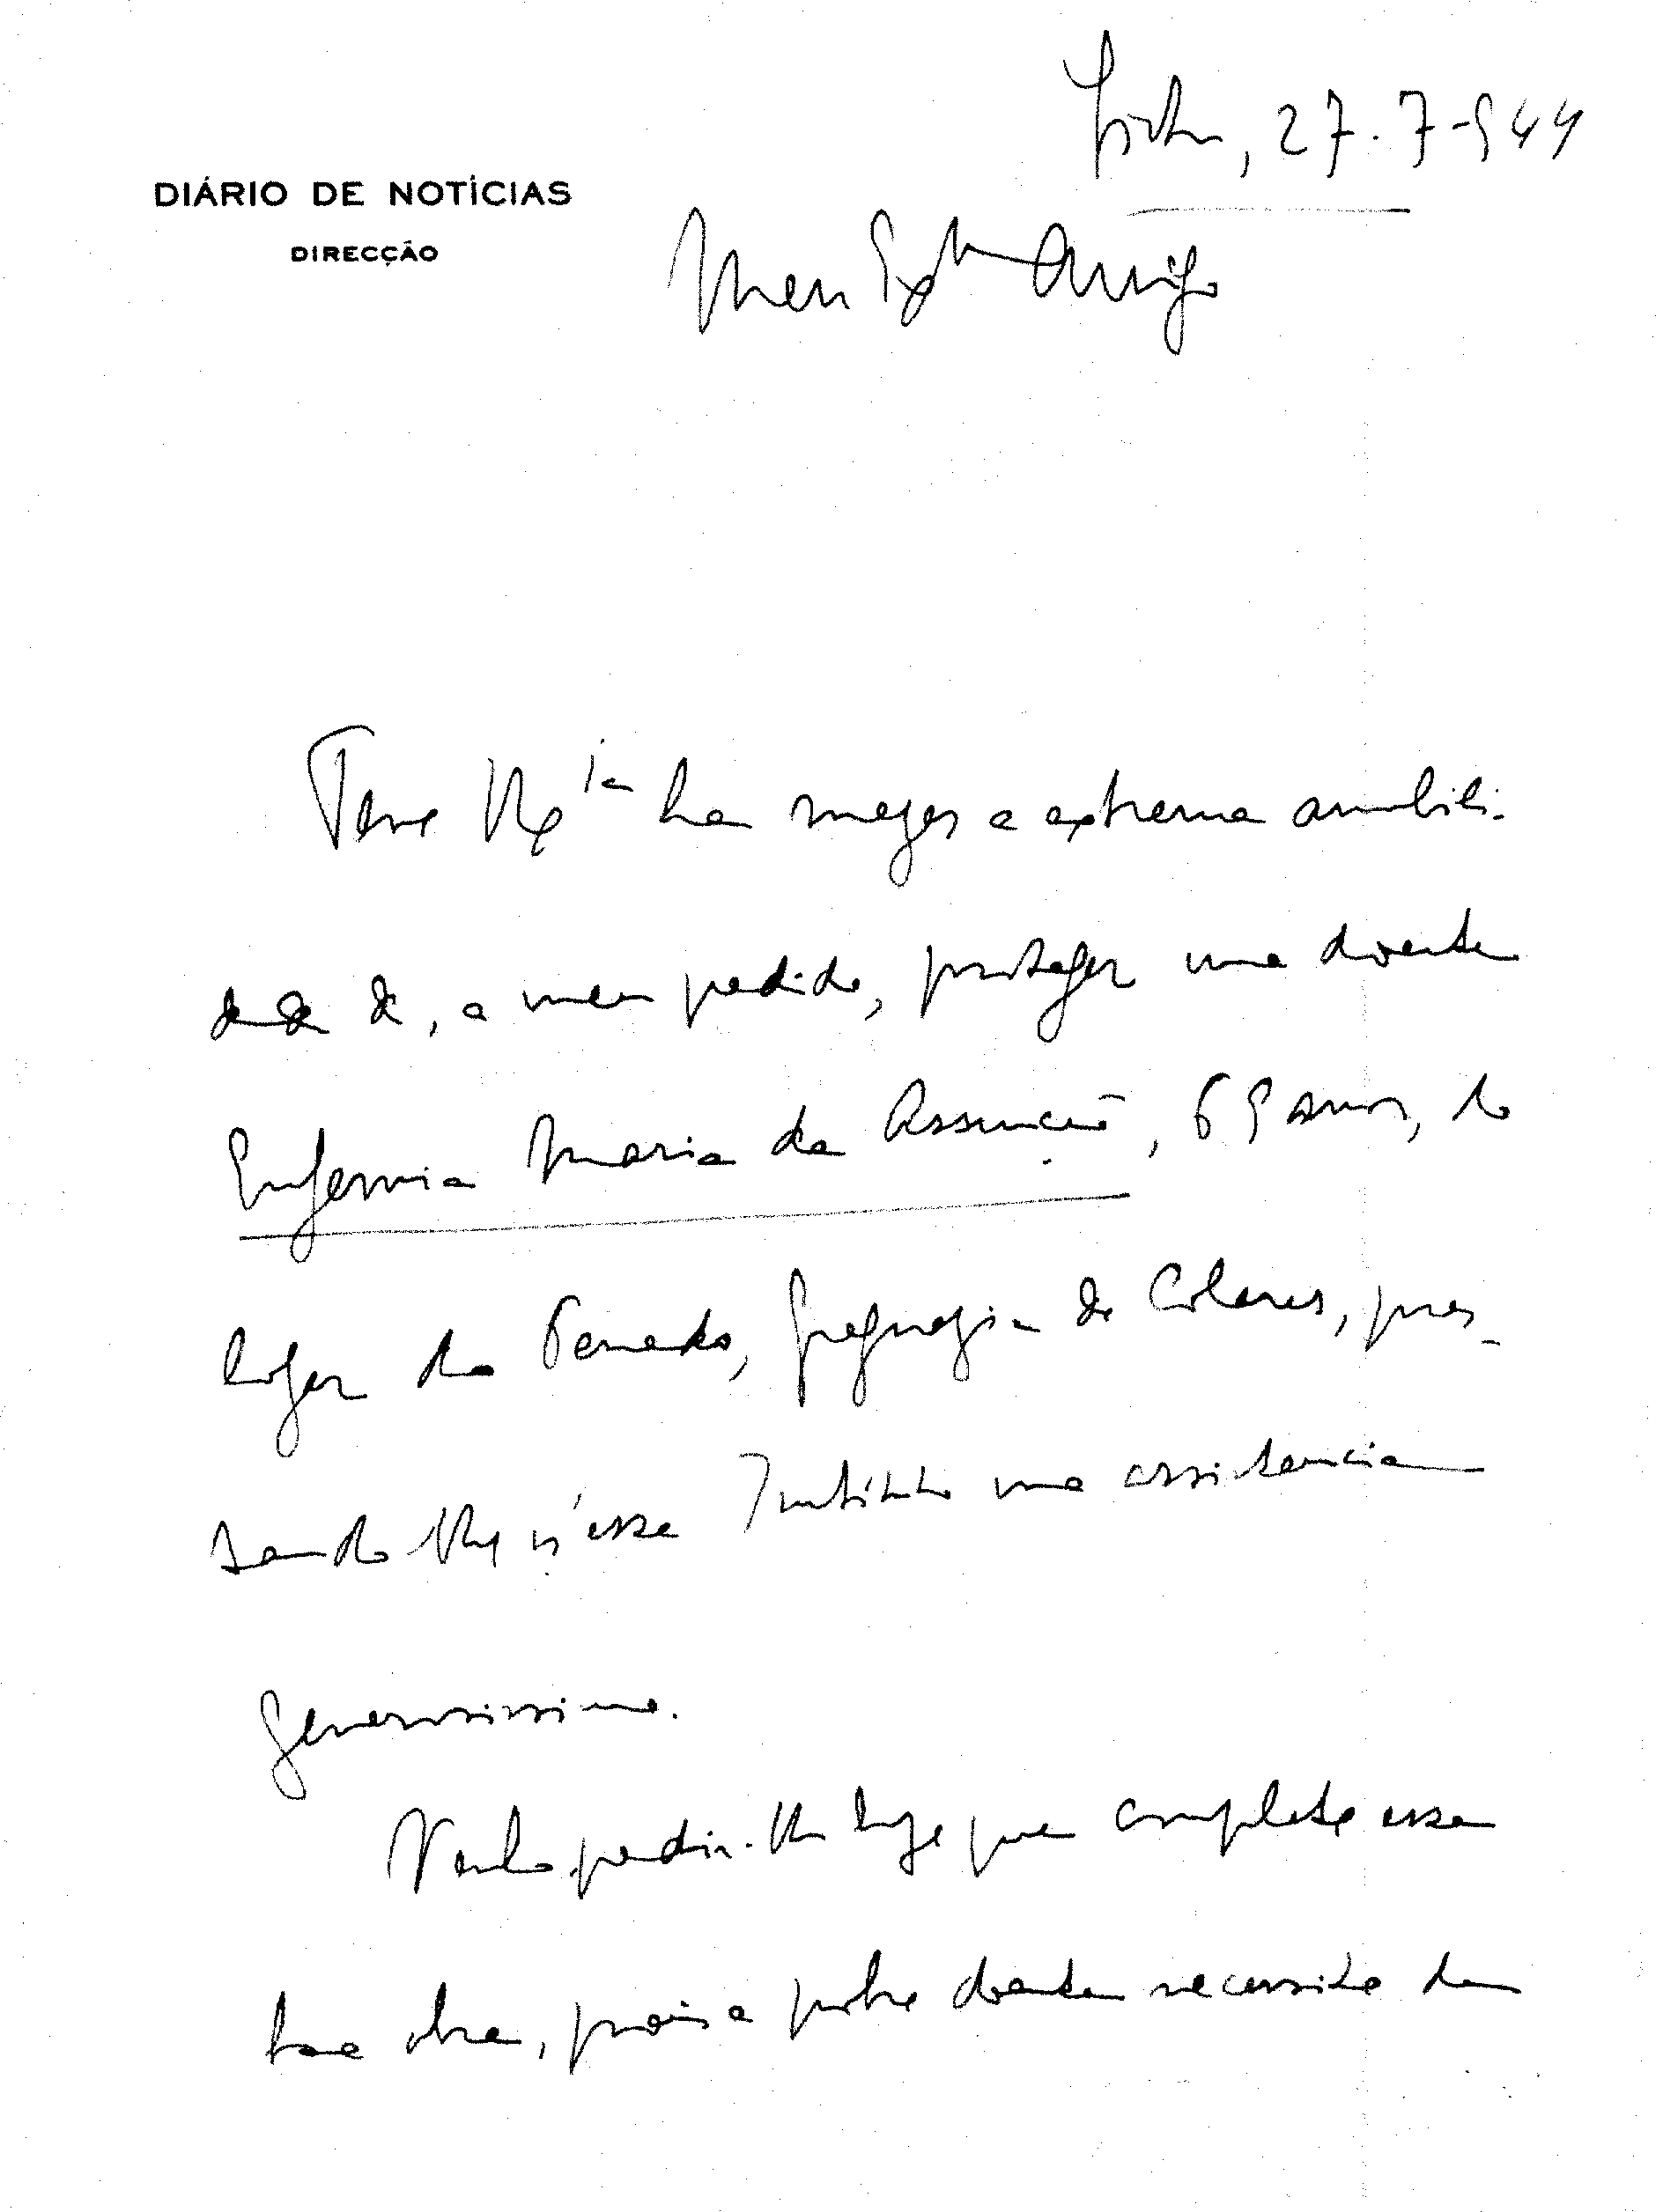 Sintra, 27-7-944
DIÁRIO DE NOTÍCIAS
DIRECÇÃO
Meu Exmo Amigo
Teve V Exia ha mezes a extrema amabili-
dade de, a meu pedido, proteger uma doente
Eufemia Maria da Assunção, 69 anos, do
logar do Penedo, freguezia de Colares, pres-
tando-lhe n'esse Instituto uma assistencia
generosissima.
Venho pedir-lhe hoje que complete essa
boa obra, pois a pobre doente necessita de